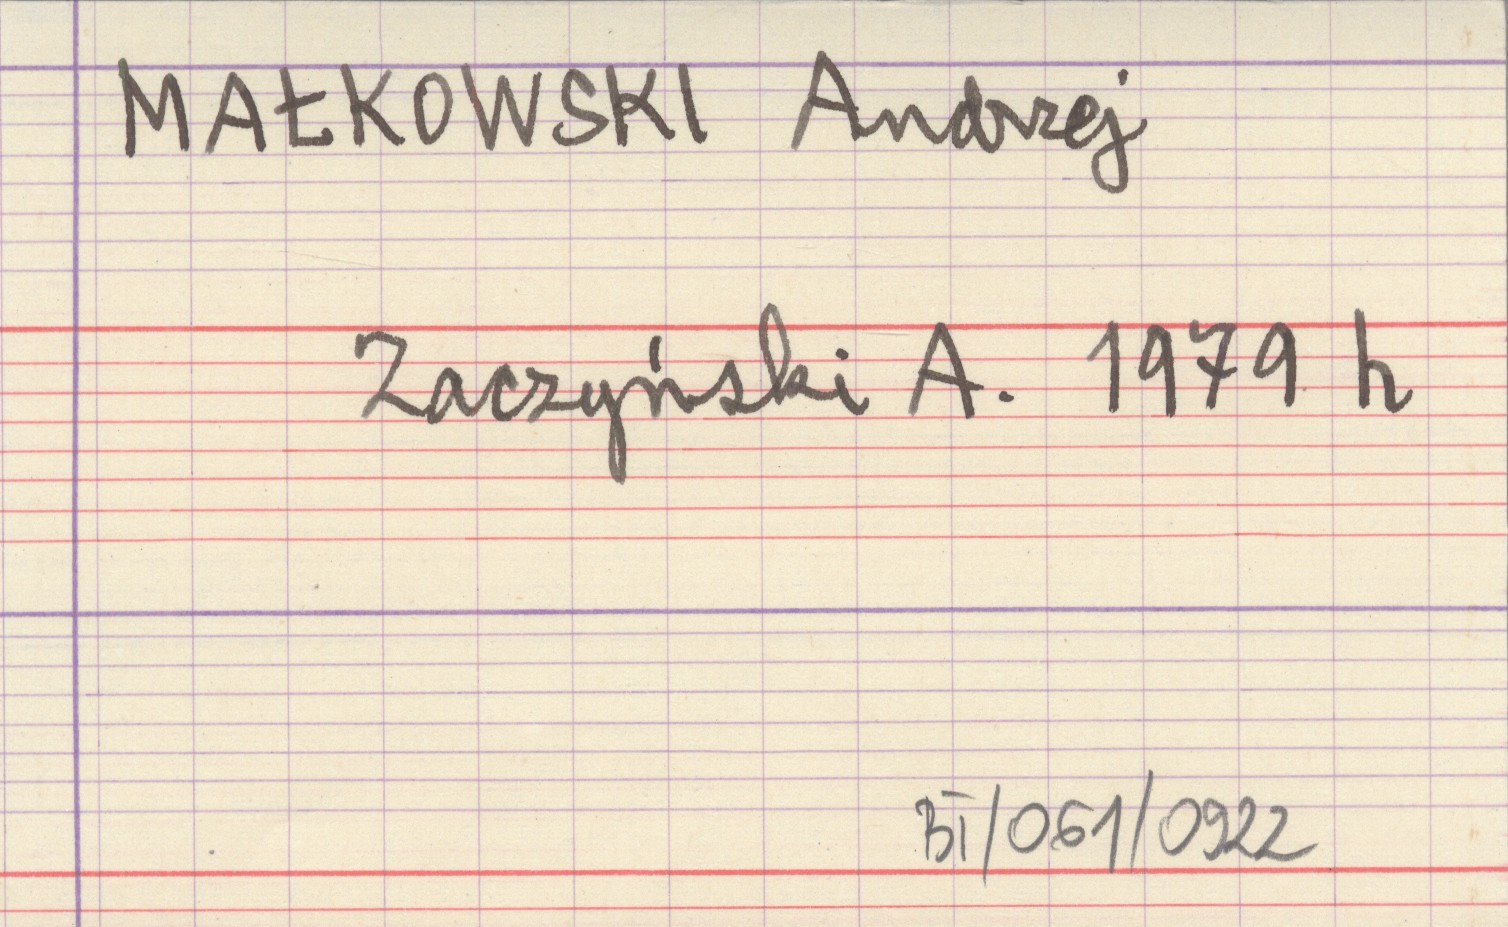 MAŁKOWSKI Andrzej
Zaczyński A. 1979 h
BI/061/0922